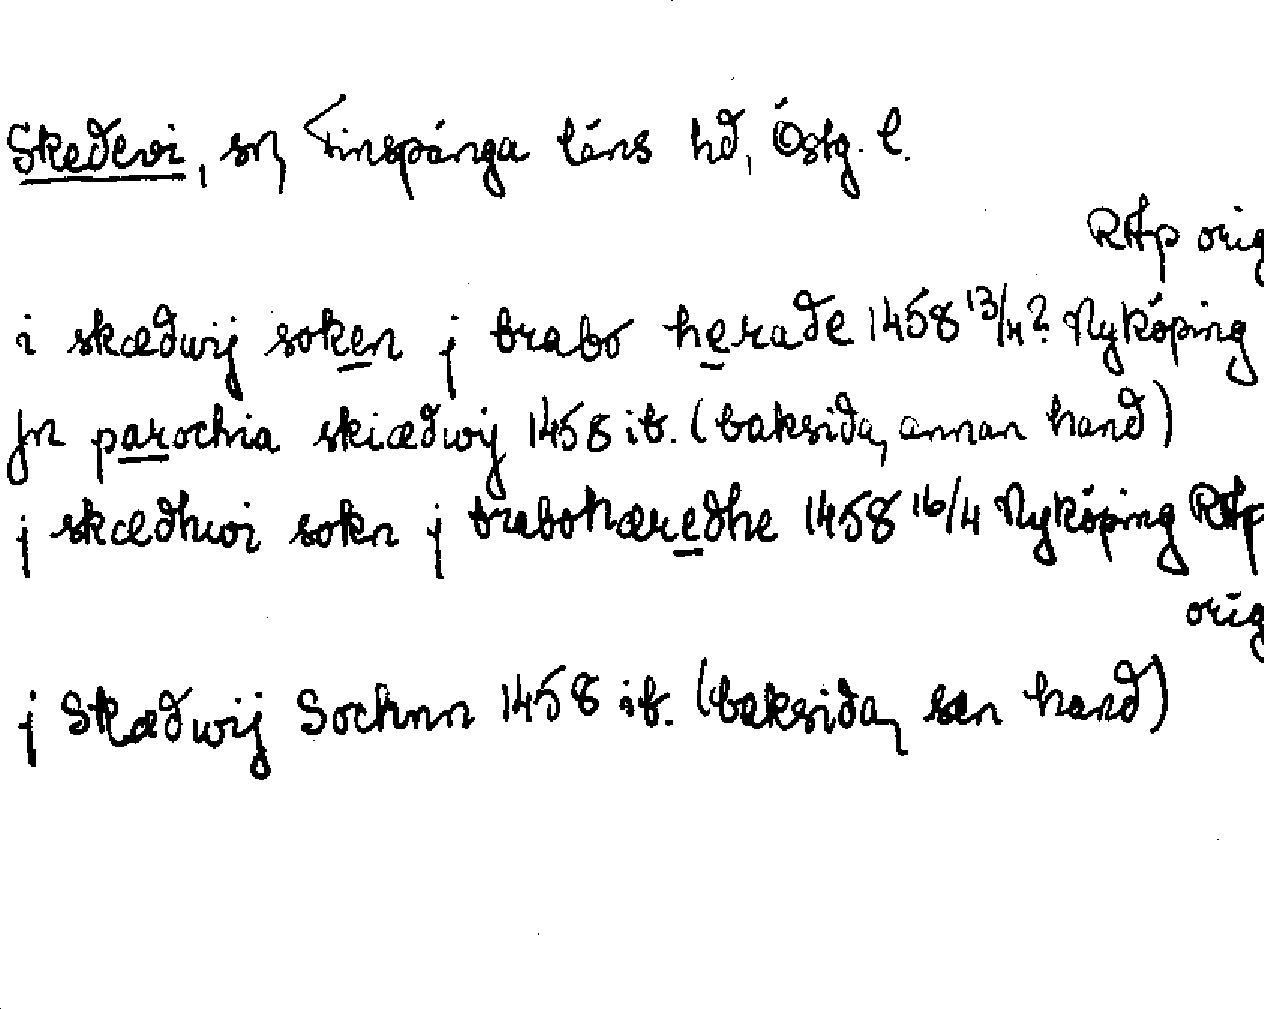 Skedevi, sn, Finspånga läns hd, Östg. l.
RAp orig
i skædwij soken j brabo herade 1458 13/4? Nyköping
Jn parochia skiædwij 1458 ib. (baksida, annan hand)
j skædhwi sokn j brabohæredhe 1458 16/4 Nyköping RAp
orig
j Skædwij Sochnn 1458 ib. (baksida, sen hand)